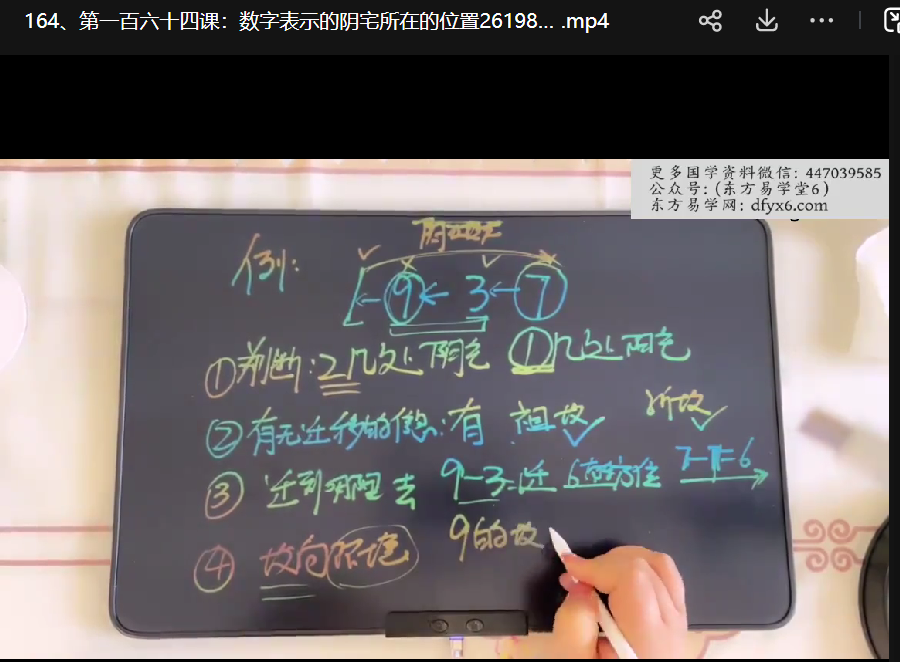 164、第一百六十四课：数字表示的阴宅所在的位置26198... .mp4
更多国学资料微信：447039585
公众号：(东方易学堂6)
东方易学网：dfyx6.com
例：
1←9←3←7
①判断：2几处阴宅 ①几处阳宅
②有无迁移的信息：有 祖坟 新坟
③迁到哪里去 9-3=迁6的方位 7-1=6
④坟向
9的坟